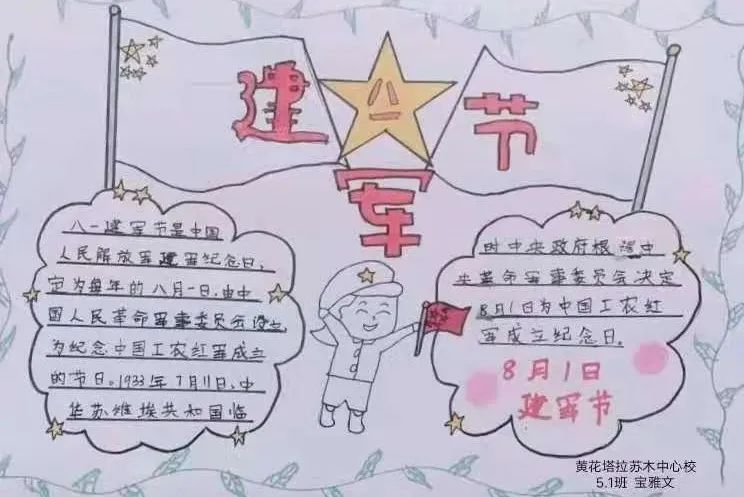 建军节
八一
八一建军节是中国
人民解放军建军纪念日,
定为每年的八月一日,由中
国人民革命军事委员会设立,
为纪念中国工农红军成立
的节日。1933年7月11日,中
华苏维埃共和国临
时中央政府根据中
央革命军事委员会决定
8月1日为中国工农红
军成立纪念日。
8月1日
建军节
黄花塔拉苏木中心校
5.1班 宝雅文